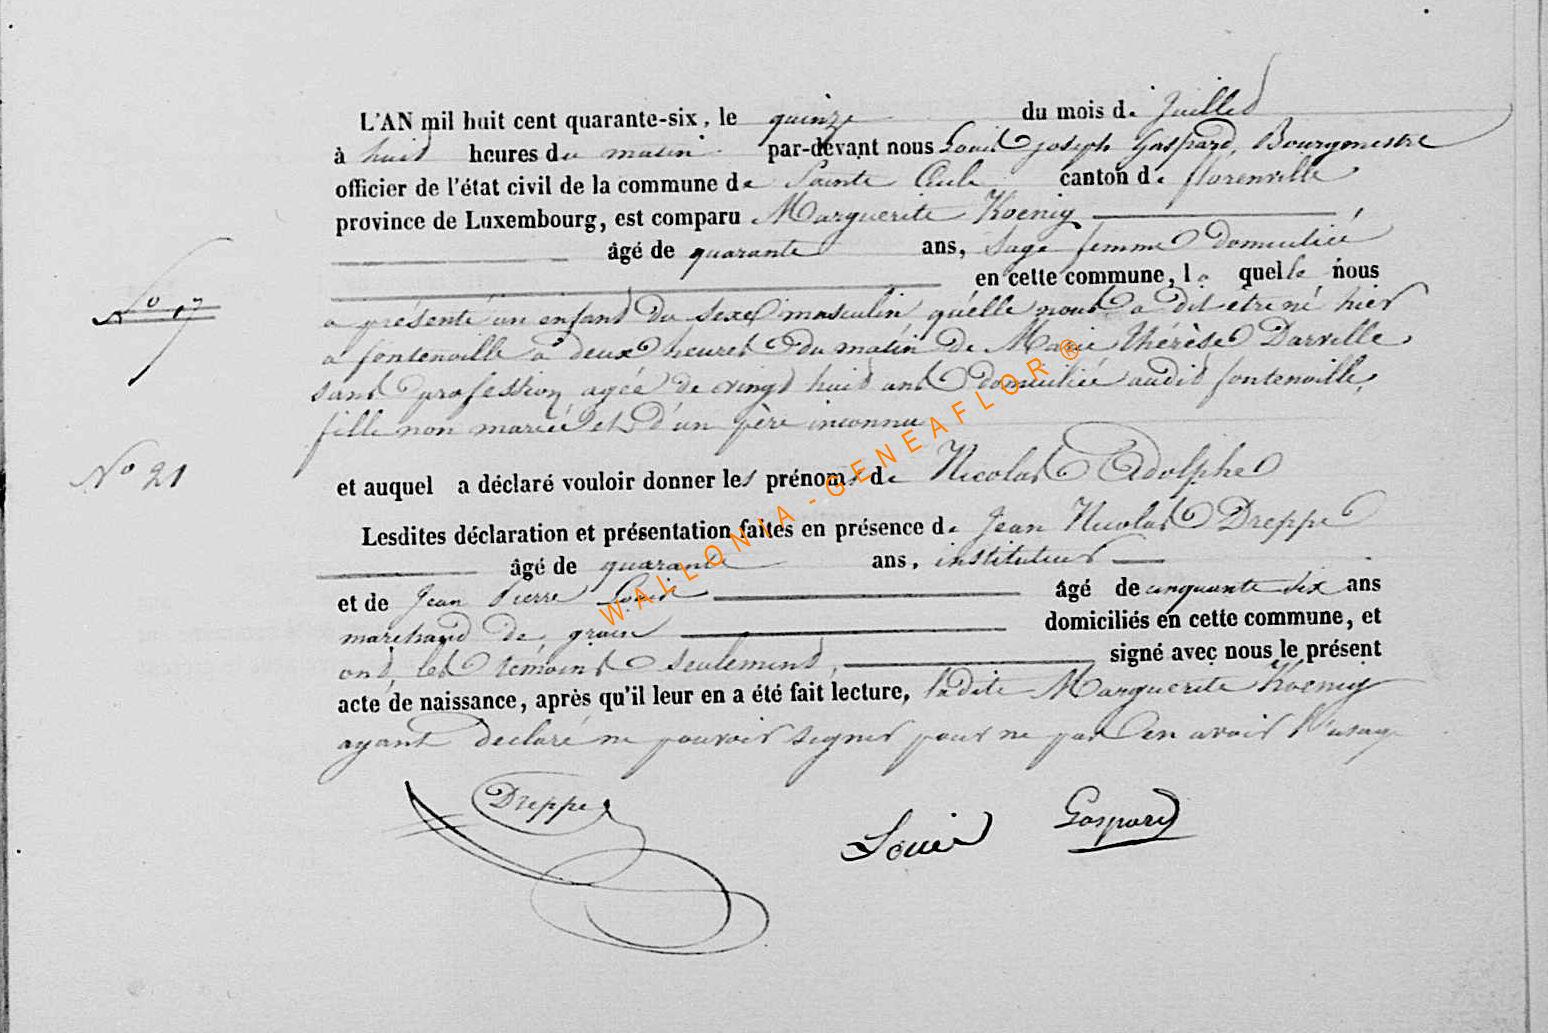 L'AN mil huit cent quarante-six, le quinze du mois de Juillet
à huit heures du matin par-devant nous Louis Joseph Gaspard, Bourgmestre
officier de l'état civil de la commune de Sainte Cécile canton de florenville
province de Luxembourg, est comparu Marguerite Koenig,
âgé de quarante ans, Sage femme domiciliée
en cette commune, le quelle nous
No 17
a présenté un enfant du sexe masculin qu'elle nous a dit etre né hier
a fontenoille a deux heures du matin de Marie thérèse Darville
sans profession agée de vingt huit ans domiciliée audit fontenoille,
fille non mariée et d'un père inconnu
No 21
et auquel a déclaré vouloir donner les prénoms de Nicolas Adolphe
Lesdites déclaration et présentation faites en présence de Jean Nicolas Dreppe
âgé de quarante ans, instituteur
et de Jean Pierre Louis âgé de cinquante six ans
marchand de grain domiciliés en cette commune, et
ont, les témoins seulement, signé avec nous le présent
acte de naissance, après qu'il leur en a été fait lecture, ladite Marguerite Koenig
ayant declaré ne pouvoir signer pour ne pas en avoir l'usage
Dreppe Louis Gaspard
WALLONIA - GENEAFLOR ®